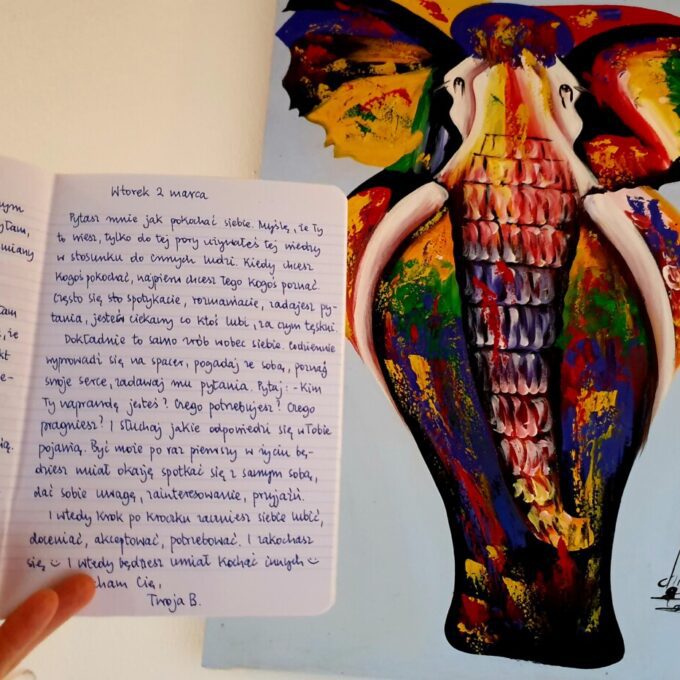 nym
ytam,
miany
tam
że
kt
e-
ią.
Wtorek 2 marca
Pytasz mnie jak pokochać siebie. Myślę, że Ty
to wiesz, tylko do tej pory używałeś tej wiedzy
w stosunku do innych ludzi. Kiedy chcesz
kogoś pokochać, najpierw chcesz Tego kogoś poznać.
Często się sto spotykacie, rozmawiacie, zadajesz py-
tania, jesteś ciekawy co ktoś lubi, za czym tęskni.
Dokładnie to samo zrób wobec siebie. Codziennie
wyprowadź się na spacer, pogadaj ze sobą, poznaj
swoje serce, zadawaj mu pytania. Pytaj: - Kim
Ty naprawdę jesteś? Czego potrzebujesz? Czego
pragniesz? I słuchaj jakie odpowiedzi się w Tobie
pojawią. Być może po raz pierwszy w życiu bę-
dziesz miał okazję spotkać się z samym sobą,
dać sobie uwagę, zainteresowanie, przyjaźń.
I wtedy krok po kroczku zaczniesz siebie lubić,
doceniać, akceptować, potrzebować. I zakochasz
się ☺ I wtedy będziesz umiał kochać innych ☺
cham Cię,
Twoja B.